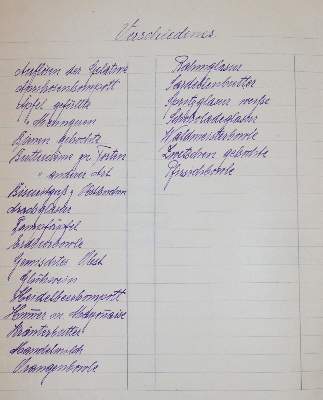 Verschiedenes.
Auflösen der Gelatine
Aprikosenkompott
Äpfel gefüllte
" Meringuen
Birnen gekochte
Buttercrème zu Torten
" andere Art
Biscuitguß z. Obstkuchen
Dampfäpfel
Erdbeerbowle
Gemischtes Obst
Glühwein
Heidelbeerkompott
Hummer in Mayonaise
Kräuterbutter
Mandelmilch
Orangenbowle
Rahmglasur
Sardellenbutter
Spritzglasur weiße
Schokoladeglasur
Waldmeisterbowle
Zwetschen gekochte
Pfirsichbowle